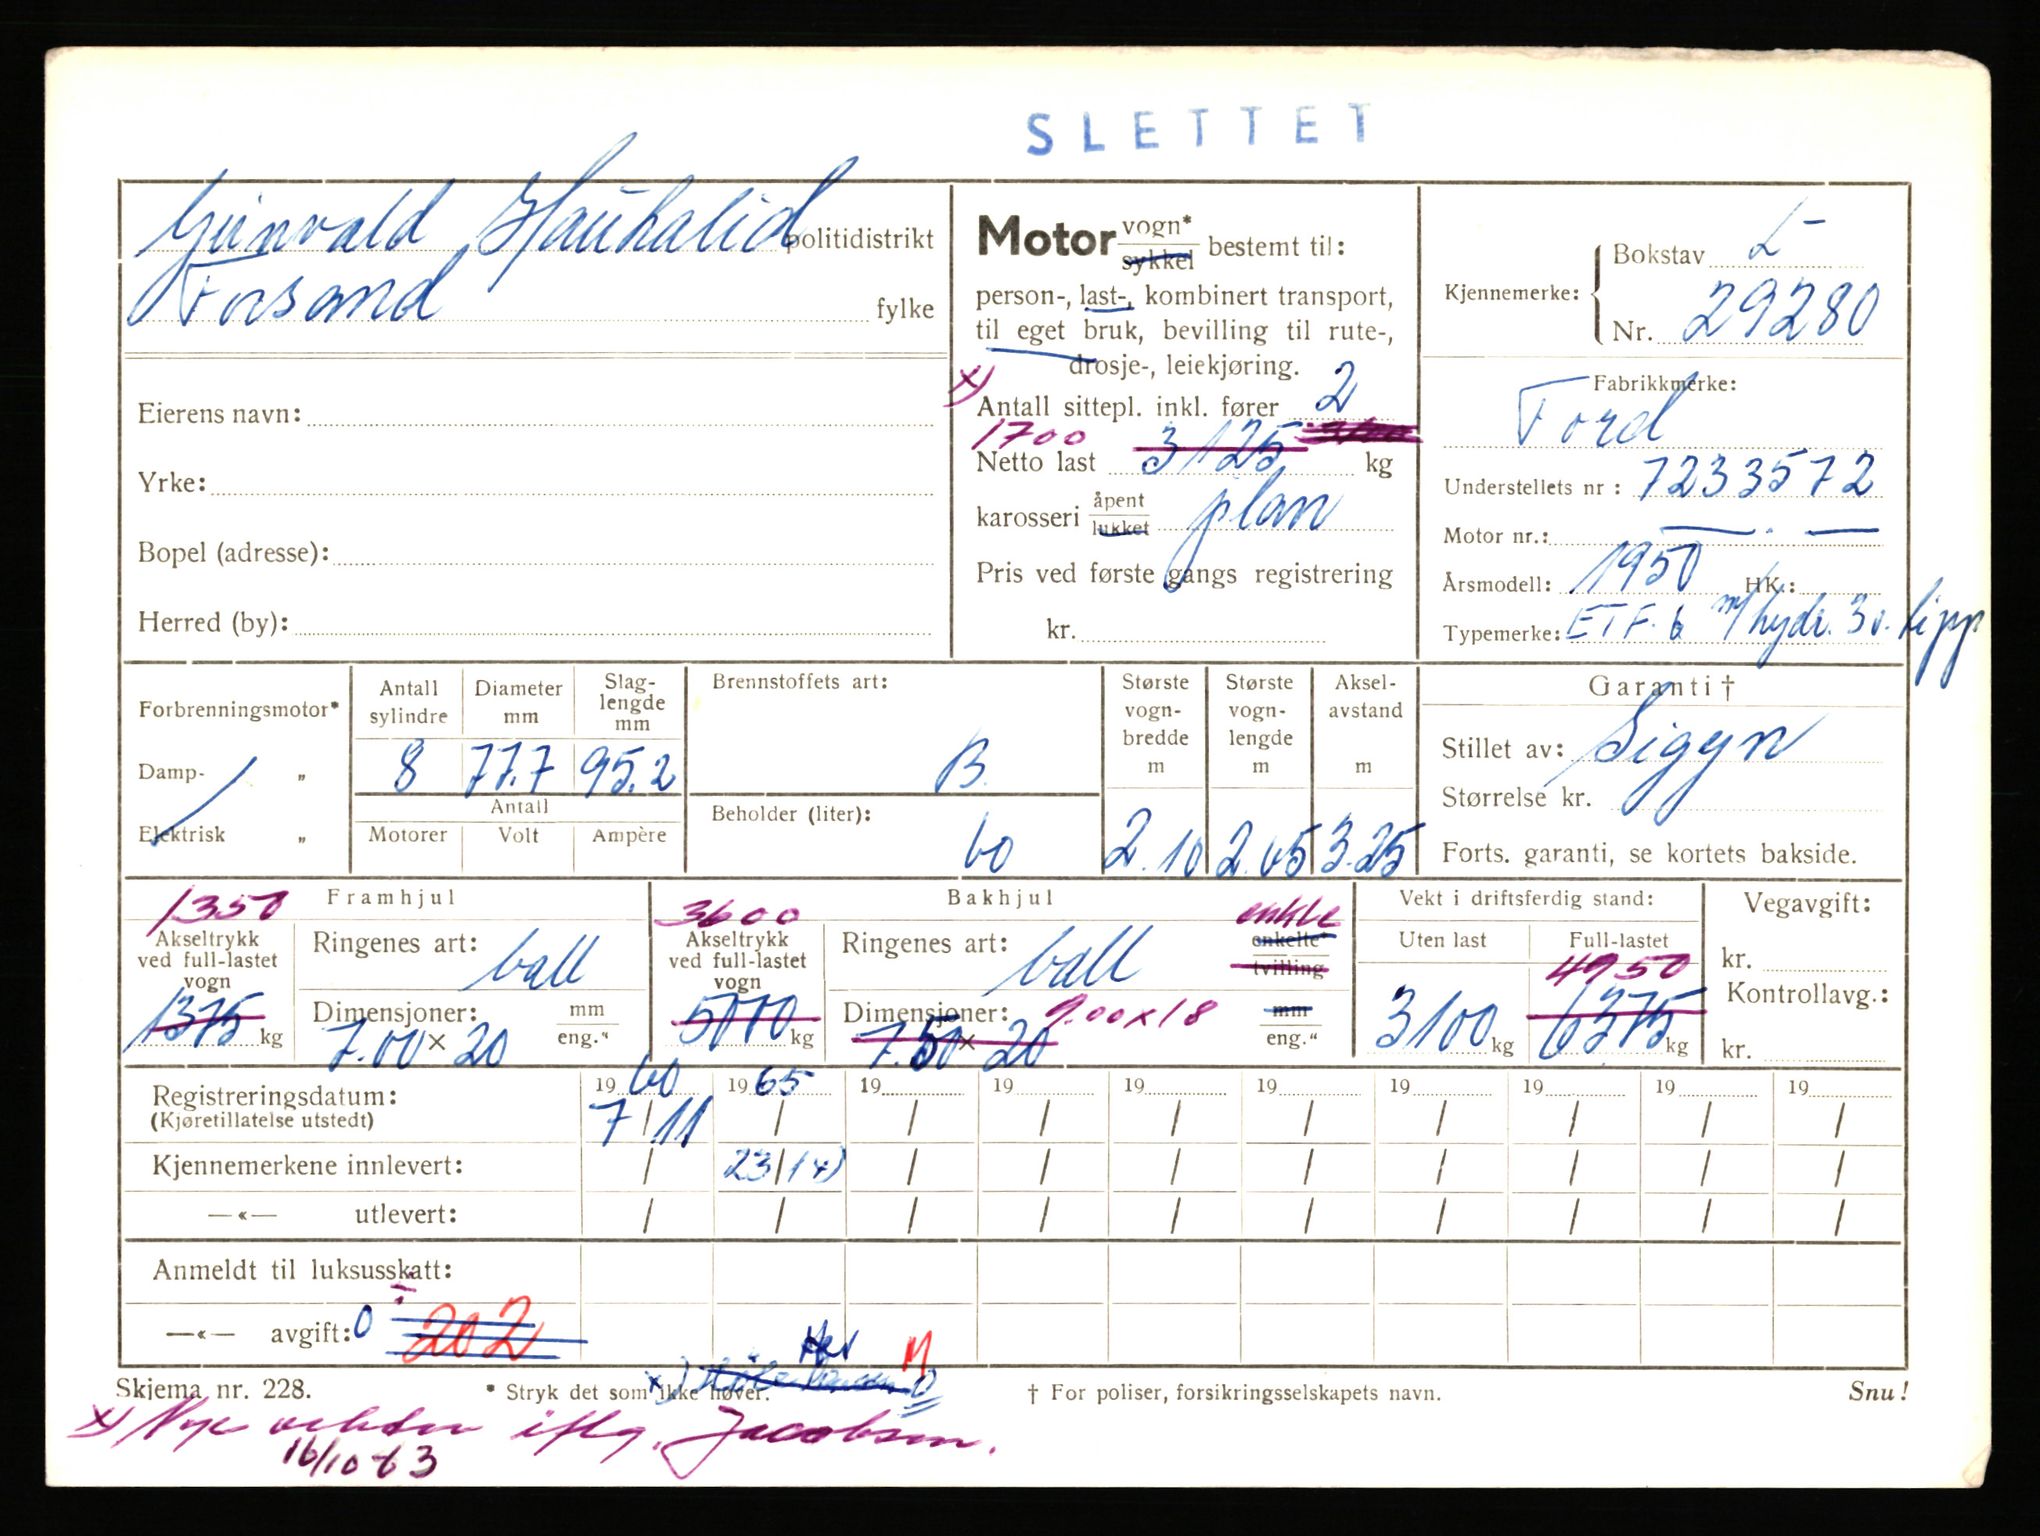 SLETTET
Gunvald Haukalid politidistrikt
Forsand fylke
Eierens navn:
Yrke:
Bopel (adresse):
Herred (by):
Motor vogn* sykkel bestemt til:
person-, last-, kombinert transport,
til eget bruk, bevilling til rute-,
drosje-, leiekjøring.
x) Antall sittepl. inkl. fører 2
1700
Netto last 3125 kg
karosseri åpent lukket plan
Pris ved første gangs registrering
kr.
Kjennemerke: Bokstav L-
Nr. 29280
Fabrikkmerke:
Ford
Understellets nr: 7233572
Motor nr.: — . —
Årsmodell: 1950 HK.:
Typemerke: ETF. 6 m/hydr. 3 s. tipp
Forbrenningsmotor*
Damp- „
Elektrisk „
Antall sylindre 8
Diameter mm 77.7
Slaglengde mm 95.2
Antall
Motorer Volt Ampère
Brennstoffets art: B.
Beholder (liter): 60
Største vognbredde m 2.10
Største vognlengde m 2.05
Akselavstand m 3.25
Garanti †
Stillet av: Sigyn
Størrelse kr.
Forts. garanti, se kortets bakside.
Framhjul
1350
Akseltrykk ved full-lastet vogn
1375 kg
Ringenes art: ball
Dimensjoner: mm eng."
7.00 x 20
Bakhjul
3600
Akseltrykk ved full-lastet vogn
5000 kg
Ringenes art: ball
enkle
enkelte*
tvilling
Dimensjoner: 9.00 x 18 mm eng."
7.50 x 20
Vekt i driftsferdig stand:
Uten last 3100 kg
Full-lastet 4950
6375 kg
Vegavgift:
kr.
Kontrollavg.:
kr.
Registreringsdatum: 19 60 19 65 19 19 19 19 19 19 19 19
(Kjøretillatelse utstedt) 7/11 / / / / / / / / /
Kjennemerkene innlevert: / 23/1 x) / / / / / / / /
—«— utlevert: / / / / / / / / / /
Anmeldt til luksusskatt:
—«— avgift: 0 202
M
Skjema nr. 228.
* Stryk det som ikke høver.
† For poliser, forsikringsselskapets navn.
Snu!
x) Nye vekter iflg. Jacobsen.
16/10-63